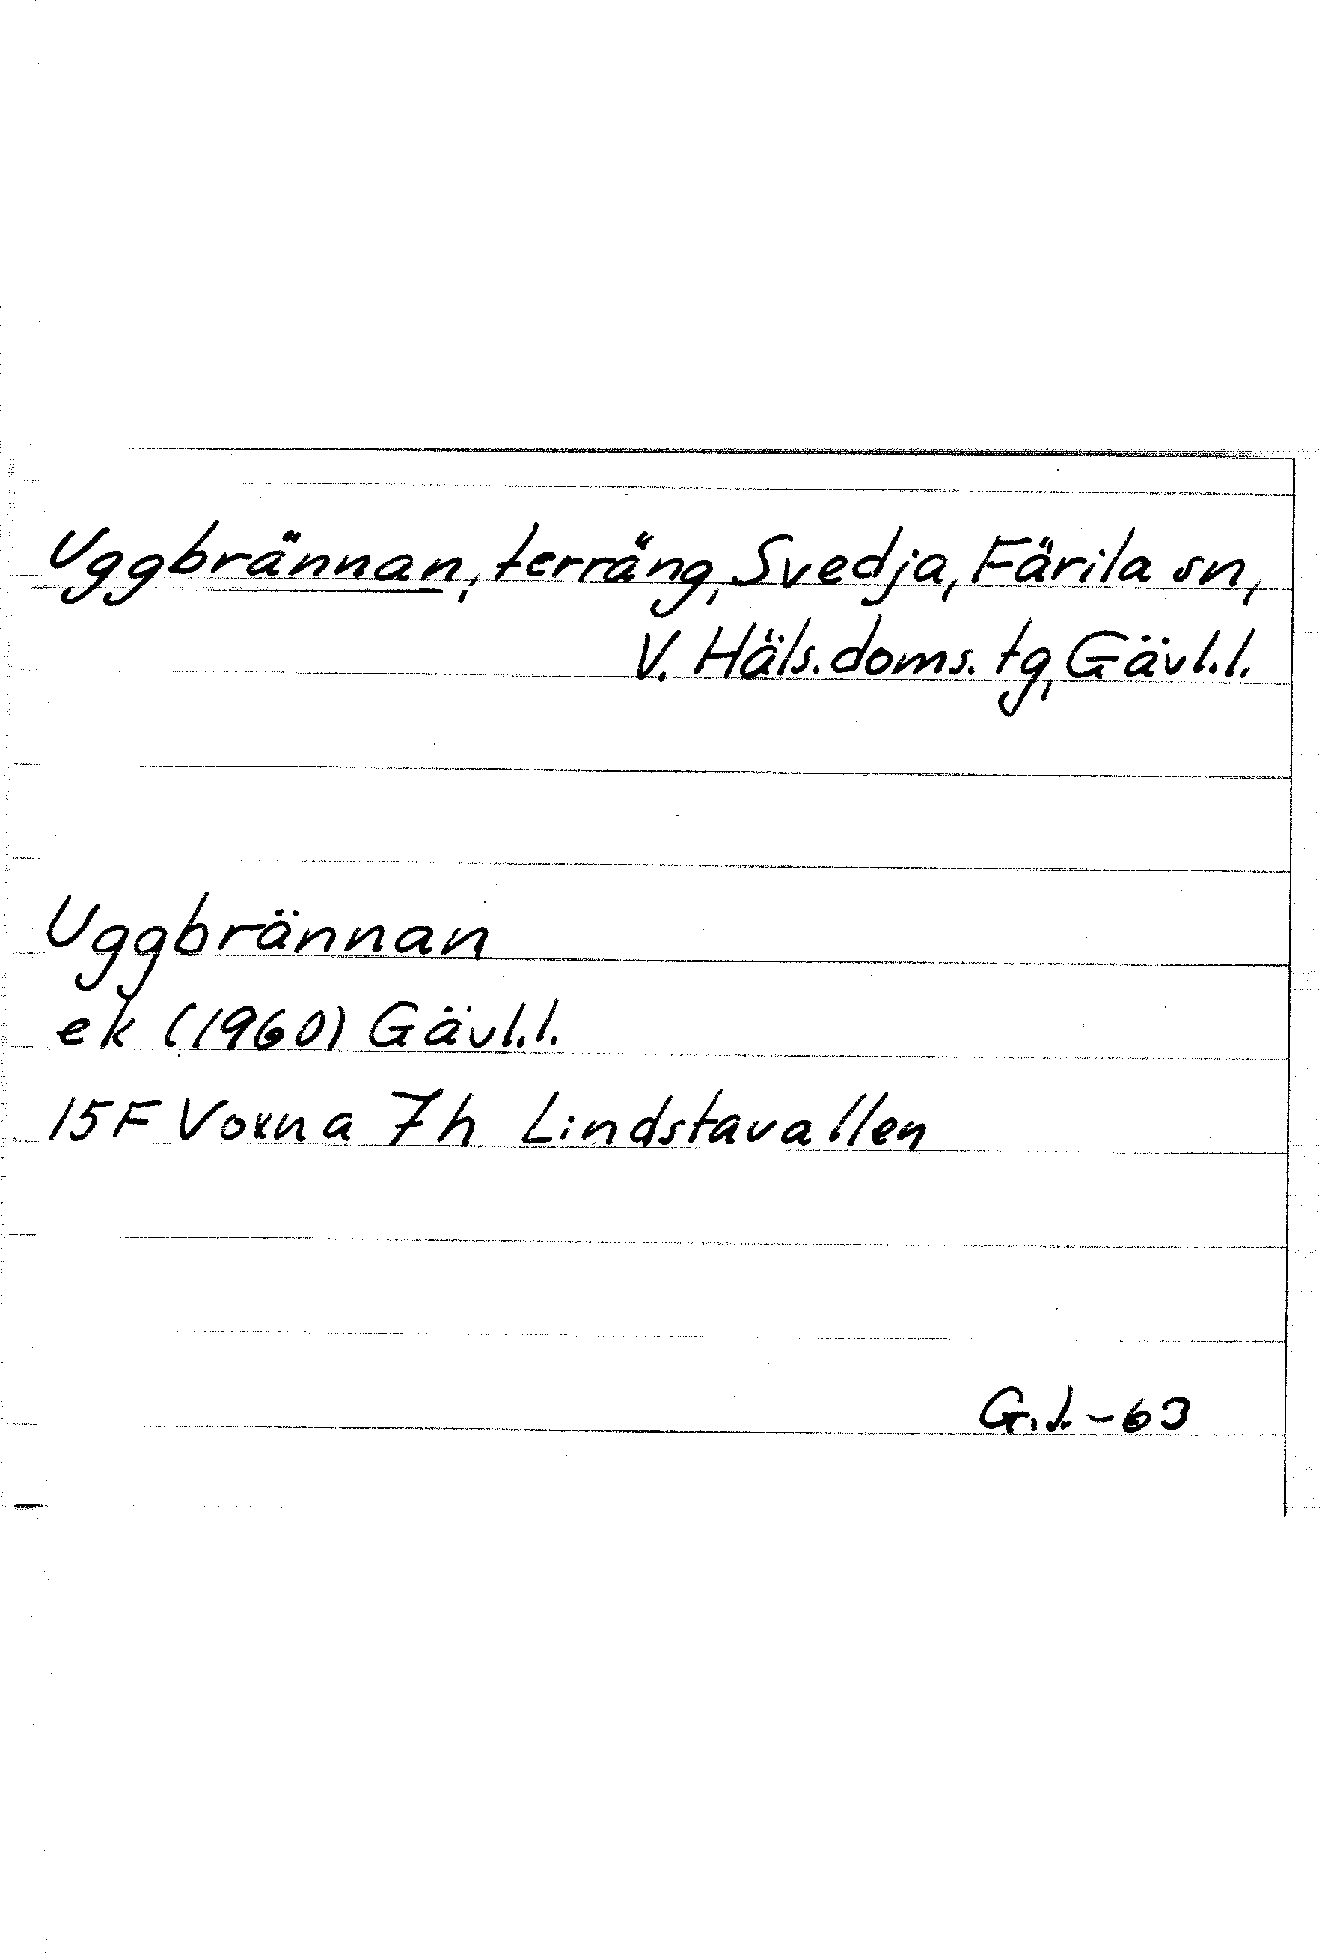 Uggbrännan, terräng, Svedja, Färila sn,
V. Häls. doms. tg, Gävl. l.
Uggbrännan
ek (1960) Gävl. l.
15F Voxna 7h Lindstavallen
G. J. -63